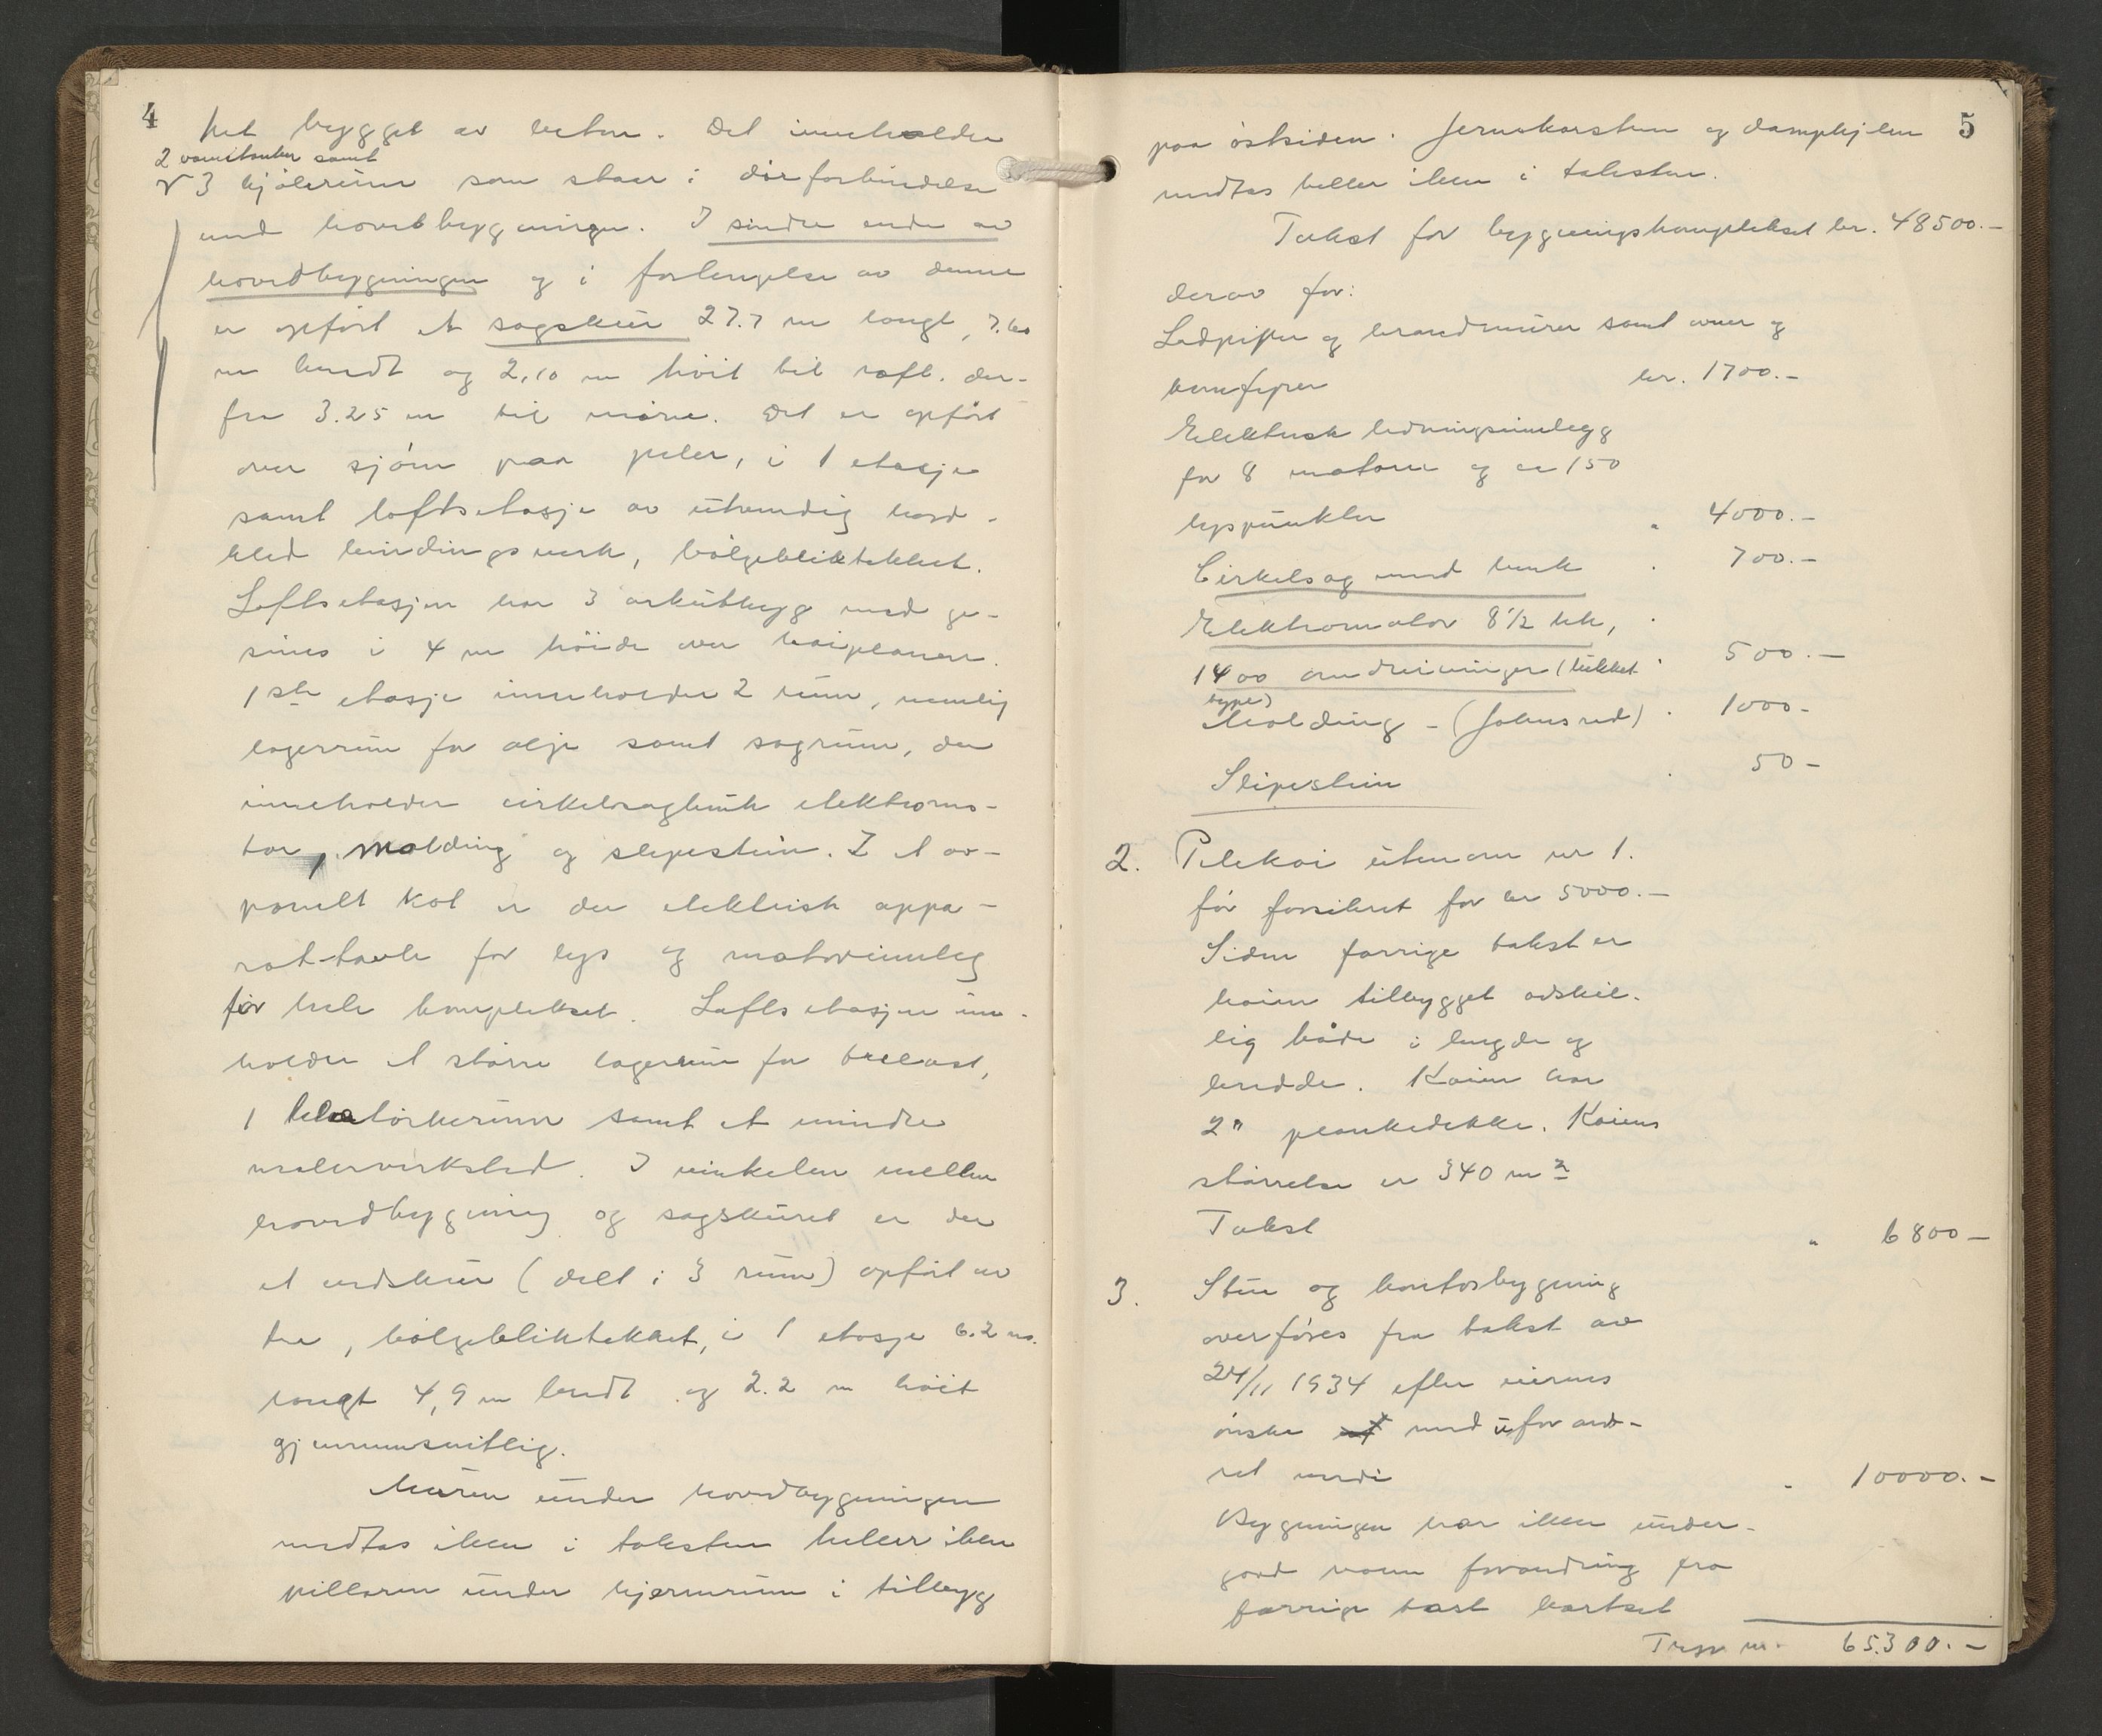 4
het bygget av beton. Det inneholder
2 vanntanker samt
3 kjølerum som staar i dørforbindelse
med hovedbygningen. I søndre ende av
hovedbygningen og i forlengelse av denne
er opført et sagskur 27.7 m langt, 7.60
m bredt og 2,10 m høit til raft. der-
fra 3.25 m til møne. Det er opført
over sjøen paa peler, i 1 etasje
samt loftsetasje av utvendig bord-
kled bindingsverk, bølgebliktekket.
Loftsetasjen har 3 arkutbygg med ge-
sims i 4 m høide over kaiplanen.
1ste etasje inneholder 2 rum, nemlig
lagerrum for olje samt sagrum, der
inneholder cirkelsagbenk elektromo-
tor, molding og slipestein. I et av-
panelt kot er der elektrisk appa-
rat-tavle for lys og motorinnleg
for hele komplekset. Loftsetasjen inne-
holder et større lagerrum for trelast,
1 tørkerum samt et mindre
malerverksted. I vinkelen mellem
hovedbygning og sagskuret er der
et vedskur (delt i 3 rum) opført av
tre, bølgebliktekket, i 1 etasje 6.2 m.
langt 4,9 m bredt og 2.2 m høit
gjennemsnitlig.
Muren under hovedbygningen
medtas ikke i taksten heller ikke
pillarene under kjernerum i tilbygg
5
paa østsiden. Jernskorsten og dampkjelen
medtas heller ikke i taksten.
Takst for bygningskomplekset kr. 48500.-
derav for:
Ledpiper og brandmurer samt ovner og
komfyrer kr. 1700.-
Elektrisk ledningsinnlegg
for 8 motorer og ca 150
lyspunkter " 4000.-
Cirkelsag med benk " 700.-
Elektromotor 8½ hk, "
1400 omdreininger (lukket " 500.-
type)
Molding - (Johnsred) " 1000-
Slipestein " 50-
2. Pelekai utenom nr 1.
før forsikret for kr 5000.-
Siden forrige takst er
kaien tilbygget adskil-
lig både i lengde og
bredde. Kaien har
2" plankedekke. Kaiens
størrelse er 340 m2
Takst " 6800-
3. Stue og kontorbygning
overføres fra takst av
24/11 1934 efter eierens
ønske med uforand-
ret verdi " 10000.-
Bygningen har ikke under-
gaad noen forandring fra
forrige takst bortset
Trspr. kr. 65300.-